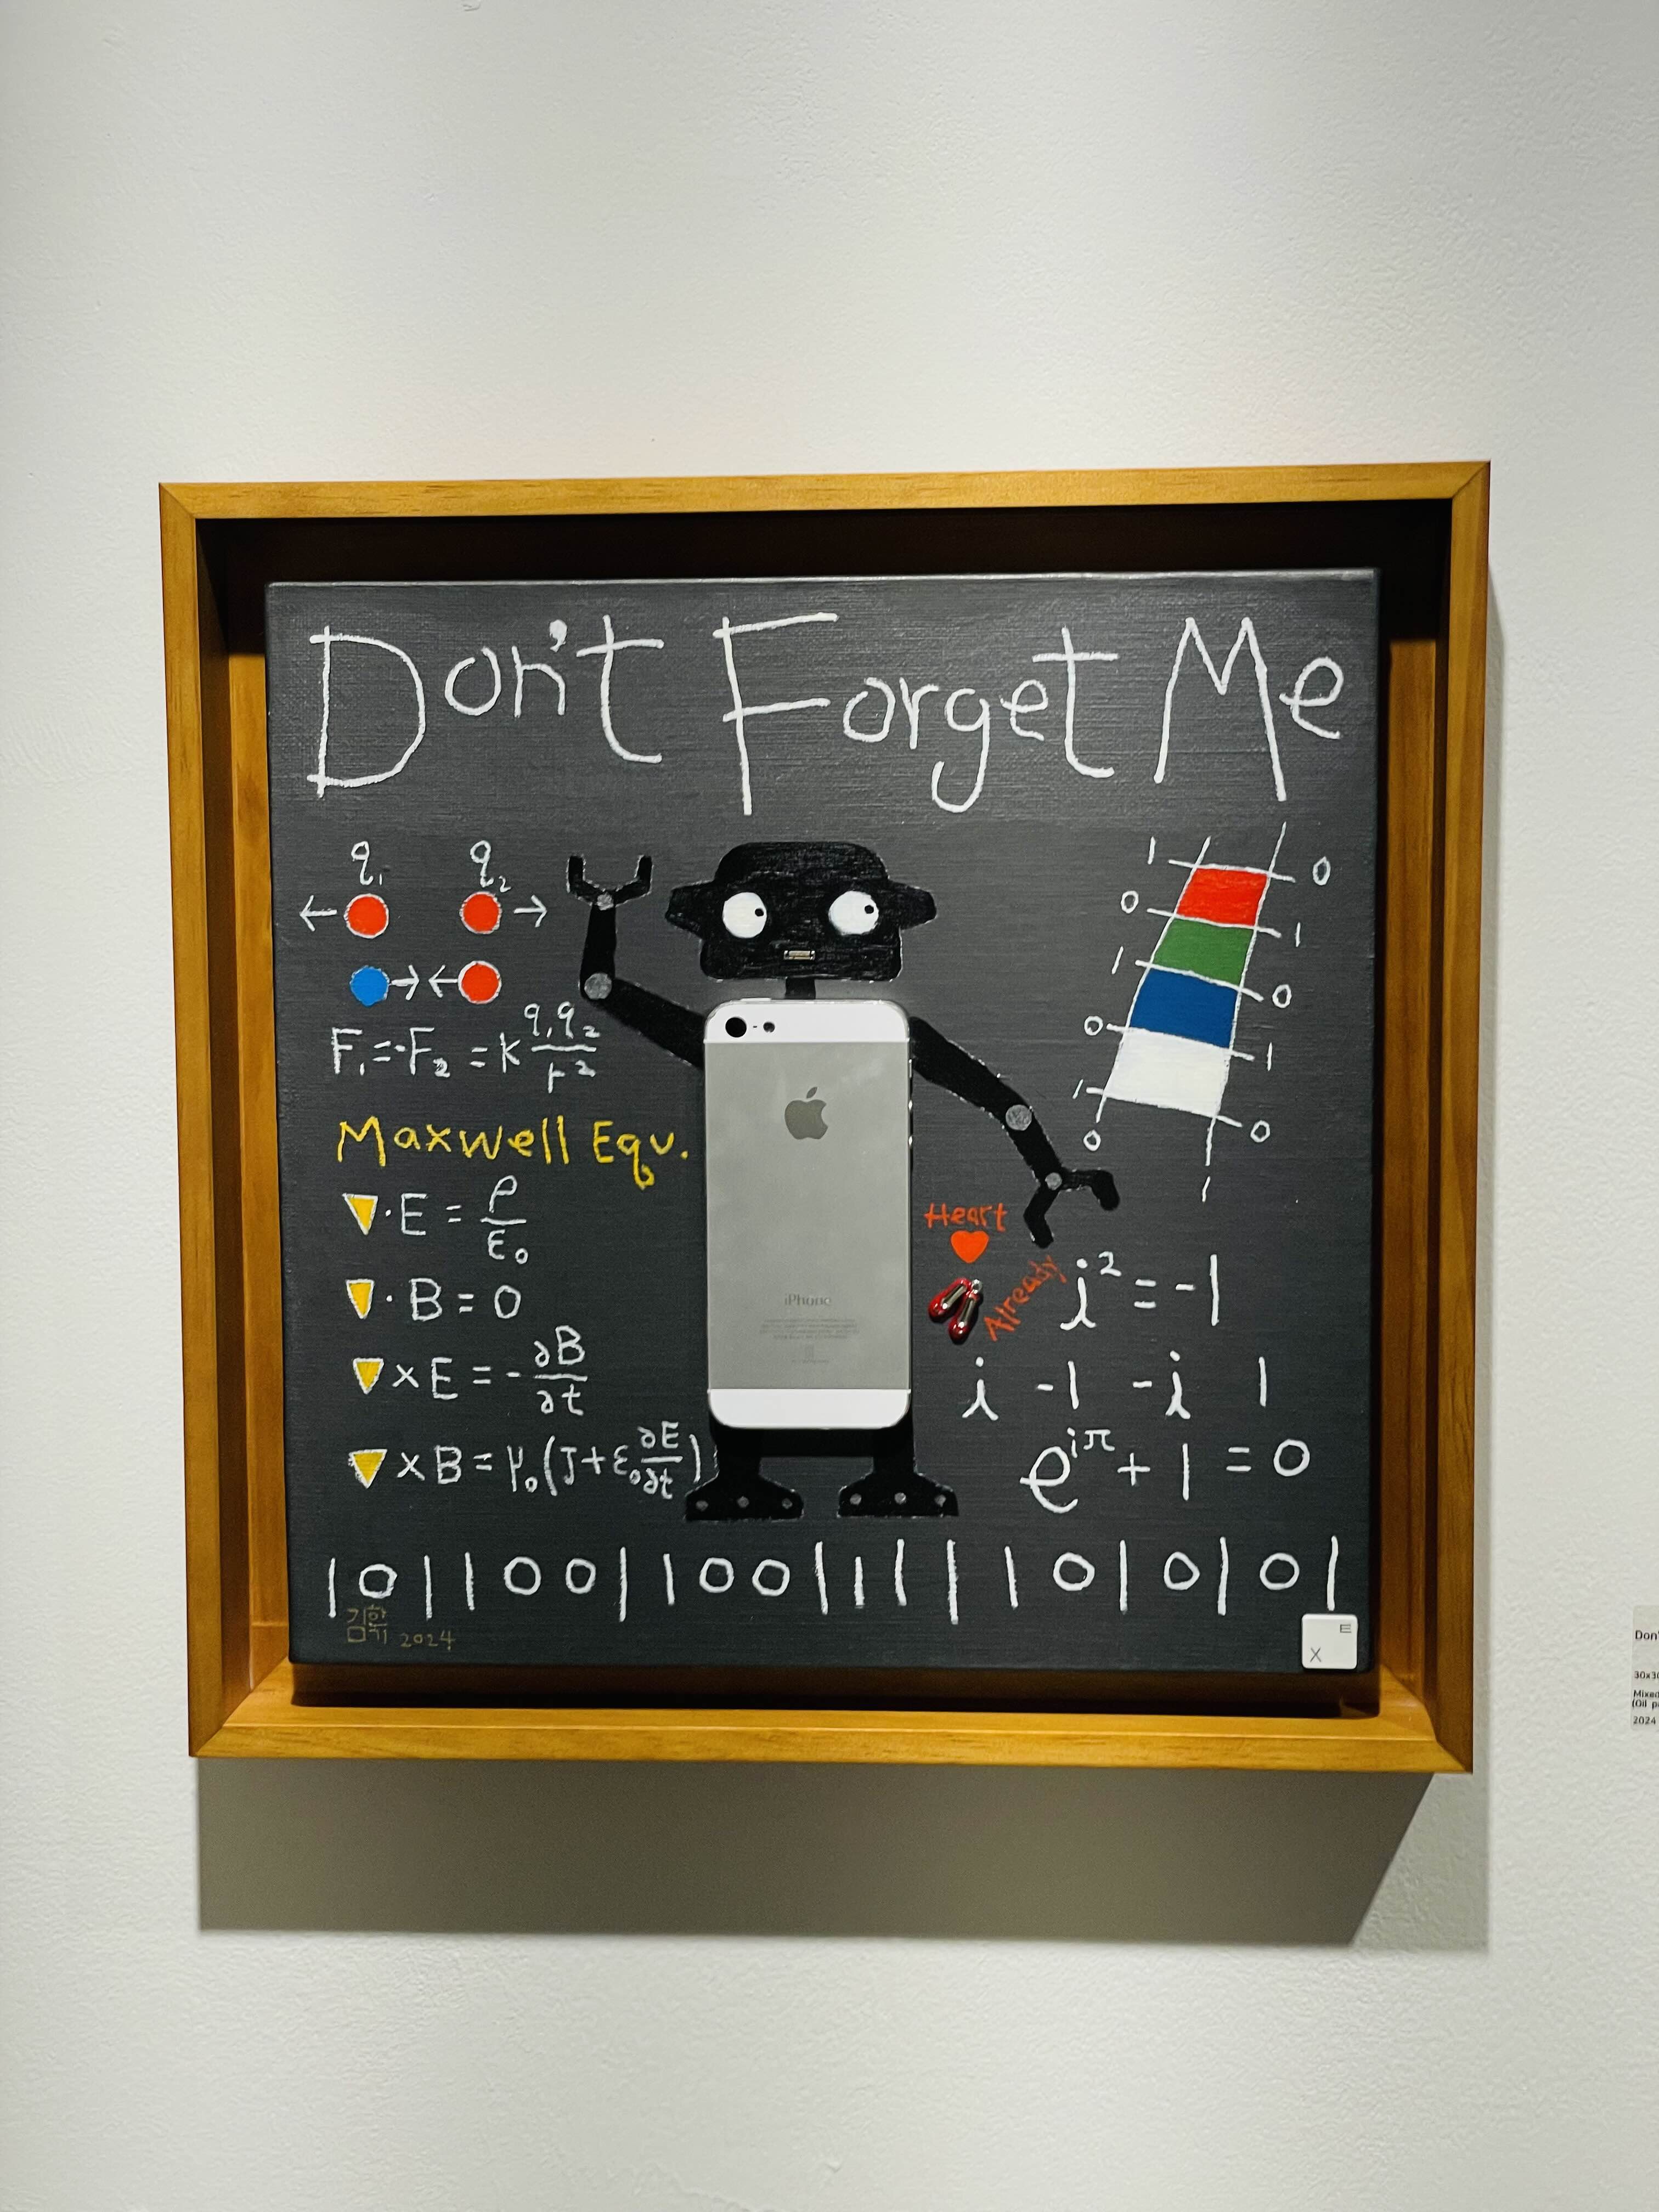 Don't Forget Me
q₁ q₂
← →
→ ←
F₁=-F₂=k q₁q₂/r²
Maxwell Equ.
▽·E=ρ/ε₀
▽·B=0
▽×E=-∂B/∂t
▽×B=μ₀(J+ε₀∂E/∂t)
iPhone
1 0
0 1
1 0
0 1
1 0
0 1
Heart
Already
i²=-1
i -1 -i 1
e^iπ+1=0
|0||00|100|||||10|0|0|
김한기 2024
E
X
Don'
30x30
Mixed
(Oil p
2024